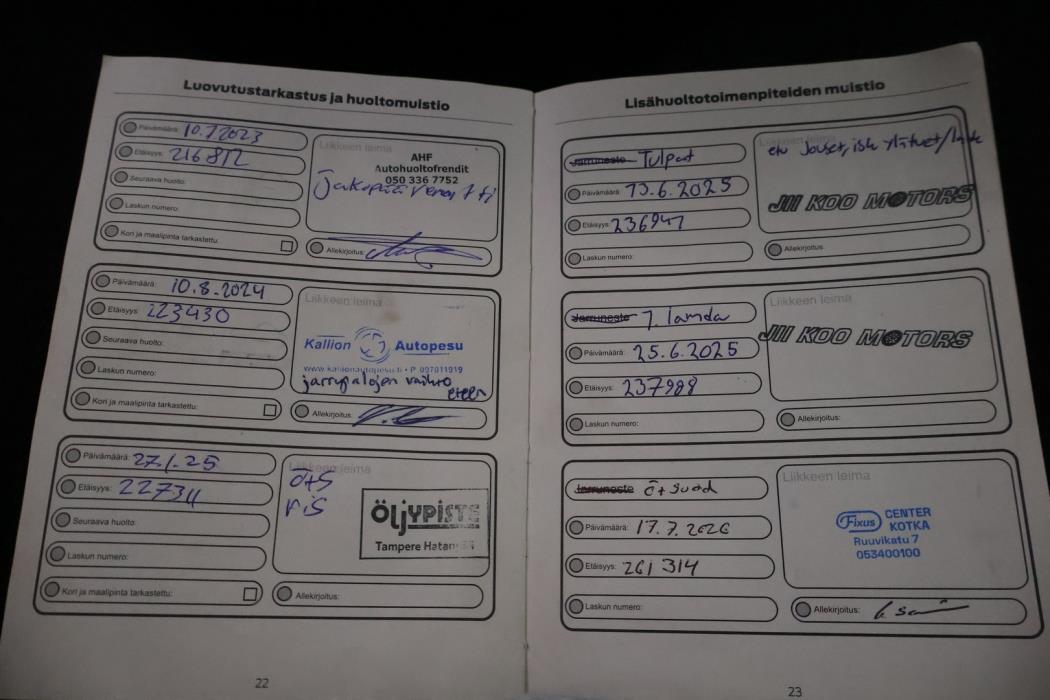 Luovutustarkastus ja huoltomuistio
Päivämäärä: 10.7.2023
Etäisyys: 216812
Seuraava huolto:
Laskun numero:
Kori ja maalipinta tarkastettu:
Liikkeen leima
AHF
Autohuoltofrendit
050 336 7752
Allekirjoitus:
Päivämäärä: 10.8.2024
Etäisyys: 223430
Seuraava huolto:
Laskun numero:
Kori ja maalipinta tarkastettu:
Liikkeen leima
Kallion Autopesu
www.kallionautopesu.fi • P. 097011919
jarrupalojen vaihto
eteen
Allekirjoitus:
Päivämäärä: 27.1.25
Etäisyys: 22734
Seuraava huolto:
Laskun numero:
Kori ja maalipinta tarkastettu:
Liikkeen leima
ö+s
ÖLJYPISTE
Tampere
Allekirjoitus:
22
Lisähuoltotoimenpiteiden muistio
Jarruneste Tulpat
Päivämäärä: 13.6.2025
Etäisyys: 236947
Laskun numero:
Liikkeen leima
etu Jouset, isk
JII KOO MOTORS
Allekirjoitus:
Jarruneste 7. lamda
Päivämäärä: 25.6.2025
Etäisyys: 237988
Laskun numero:
Liikkeen leima
JII KOO MOTORS
Allekirjoitus:
Jarruneste ö+suod
Päivämäärä: 17.7.2026
Etäisyys: 261314
Laskun numero:
Liikkeen leima
Fixus CENTER
KOTKA
Ruuvikatu 7
053400100
Allekirjoitus:
23